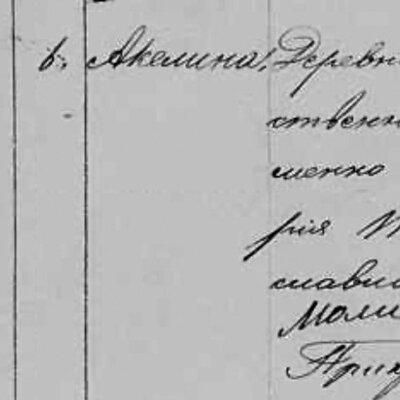 6. Акелина, Деревн
ственн
менко
рия М
славн
Моли
При